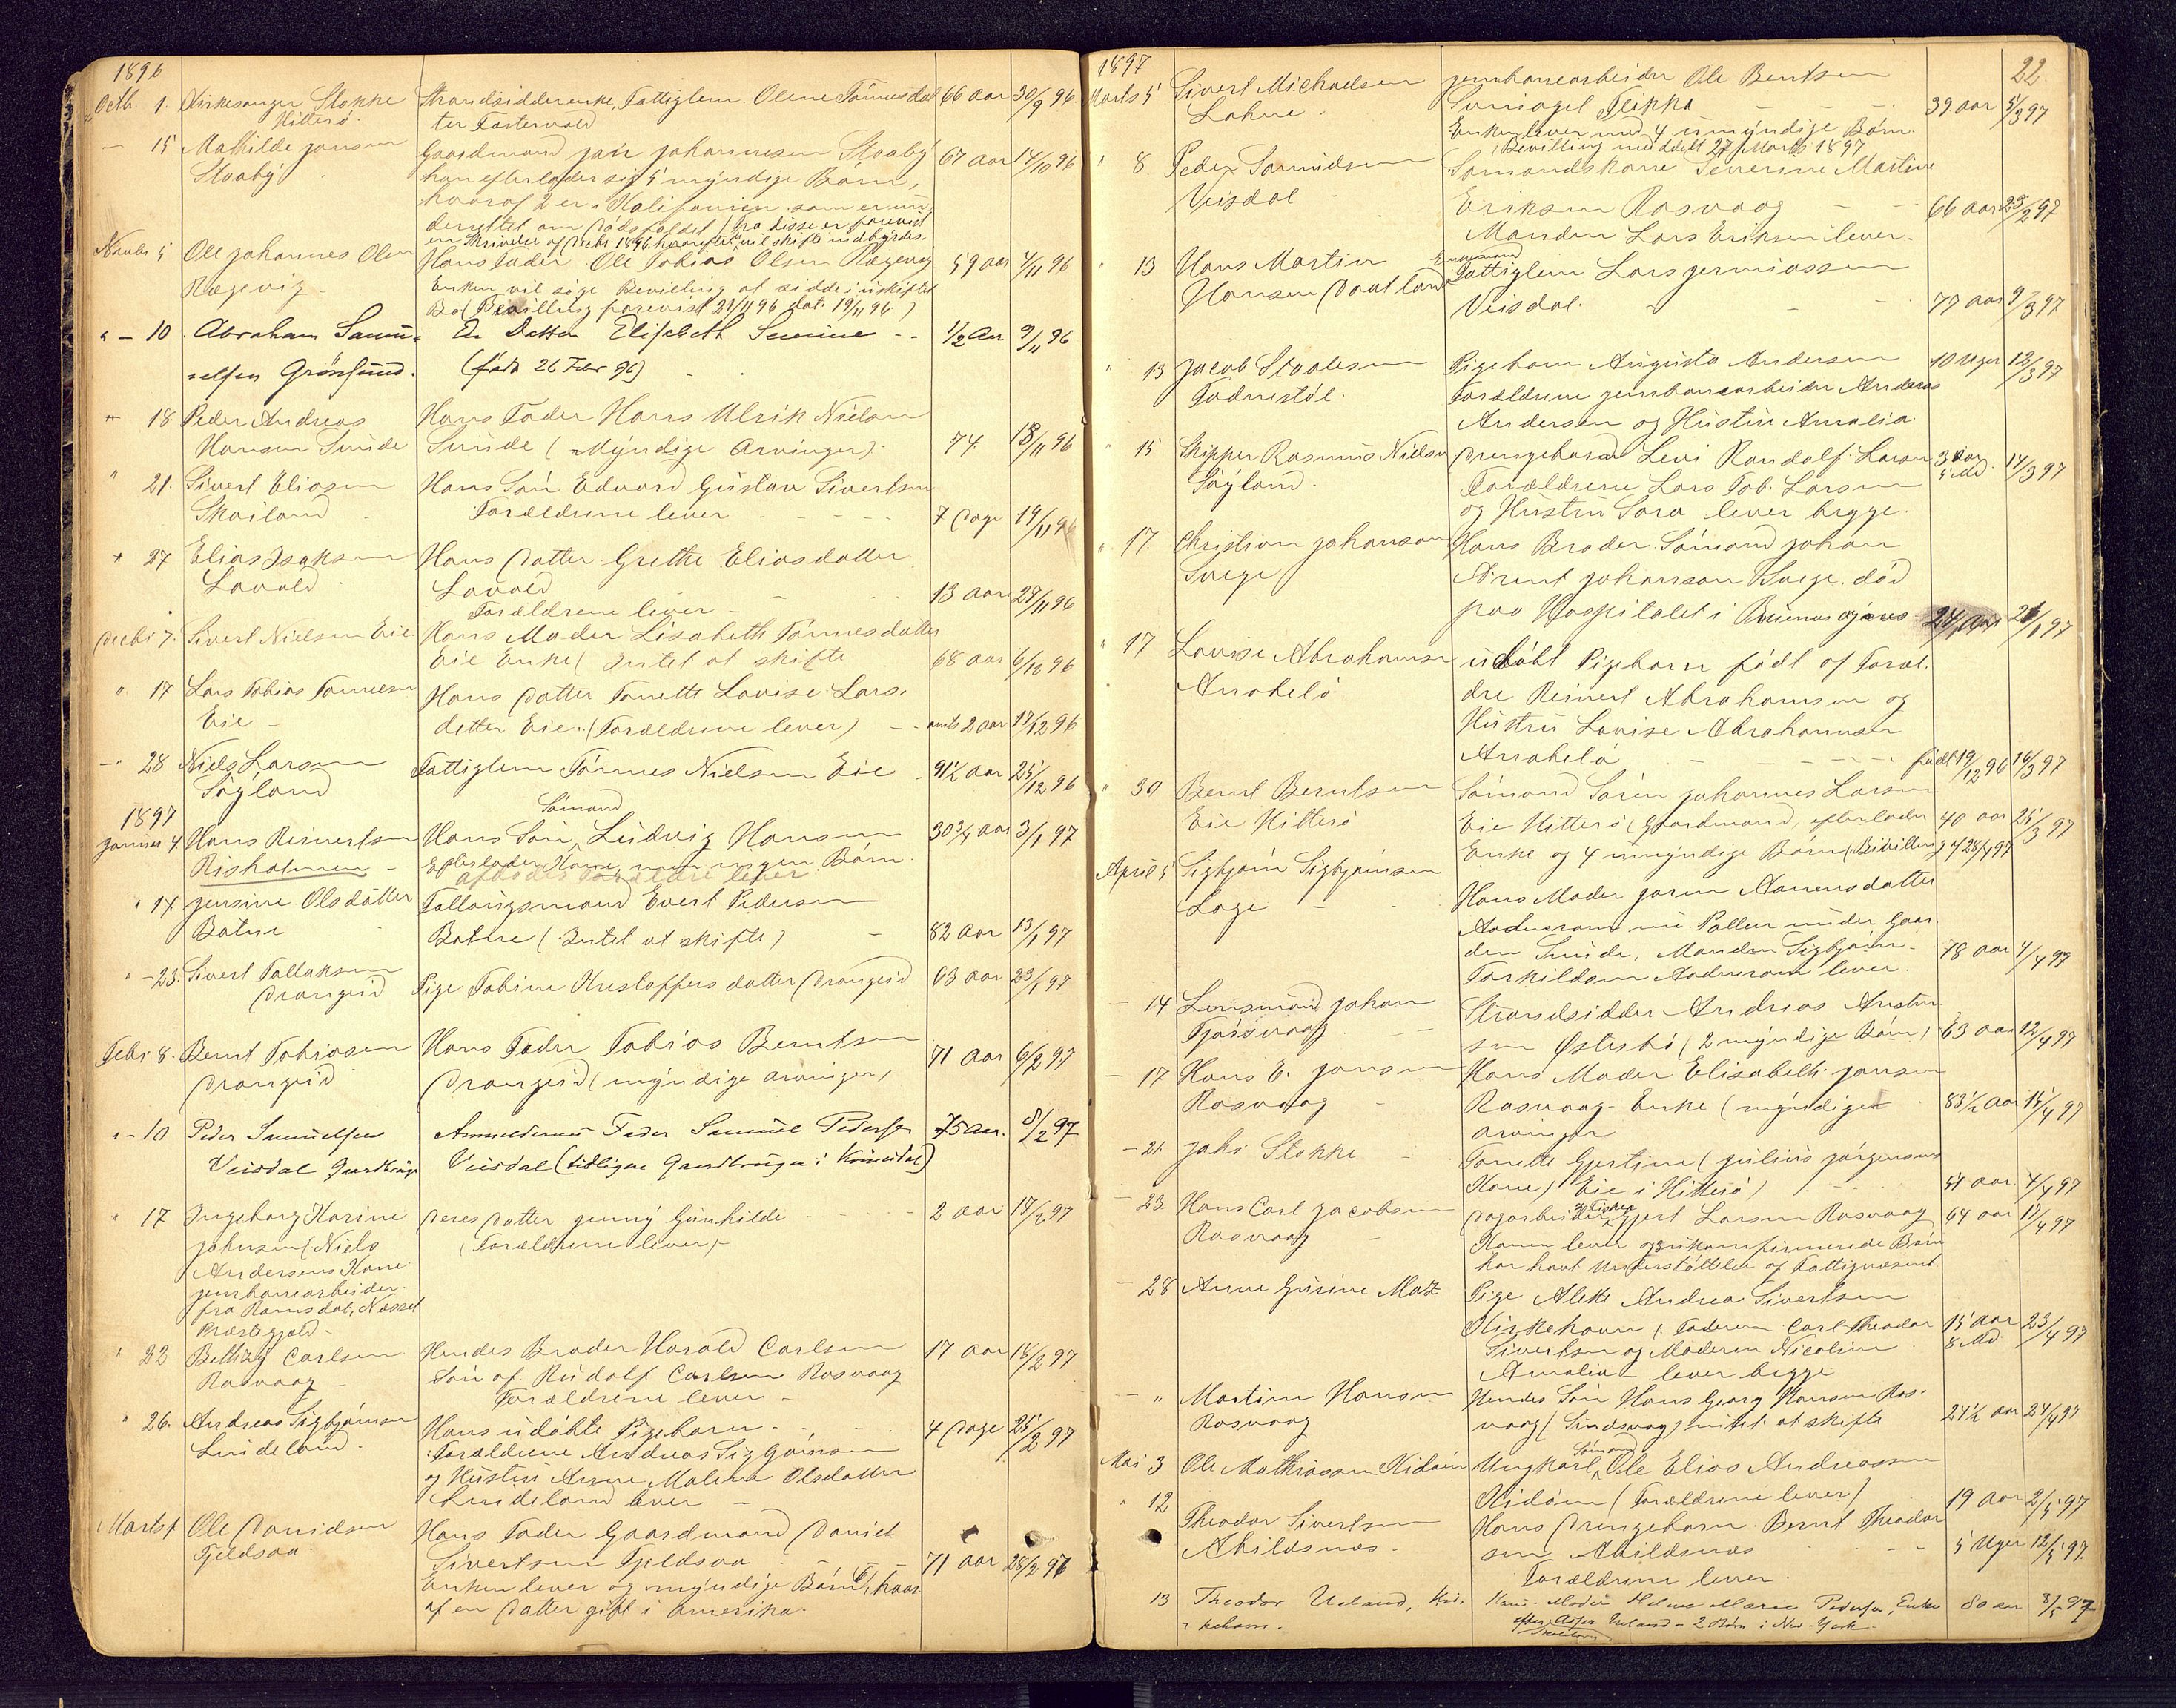 1896
Octb. 1. Kirkesanger Stokke Strandsidderenke, Fattiglem Olene Tönnesdat 66 aar 30/9 96
Hitterö. ter Fastervold
— 15 Mathilde Jansen Gaardmand Jan Johannesen Staaby 67 aar 14/10 96
Staaby han efterlader sig 5 myndige Børn,
hvoraf 2 er i Kalifonien som er un
derrettet om Dødsfaldet
Novbr 5 Ole Johannes Olsen Hans Fader Ole Tobias Olsen Rægevig 59 aar 4/11 96
Rægevig Enken vil søge Bevilling at sidde i uskiftet
Bo (Bevilling forevist 21/11 96 dat. 19/11 96)
" — 10 Abraham Samu- En Datter Elisabeth Severine -- 1/2 Aar 9/11 96
elsen Grönsund. (født 26 Febr 96)
" 18 Peder Andreas Hans Fader Hans Ulrik Nielsen
Hansen Sunde Sunde (Myndige Arvinger) 74 18/11 96
" 21. Sivert Eliasen Hans Sön Edvard Gustav Sivertsen
Skailand Forældrene lever 7 Dage 19/11 96
" 27 Elias Isaksen Hans Datter Grethe Eliasdatter
Lavold Lavold 13 aar 23/11 96
Forældrene lever
Decbr 7. Sivert Nielsen Eie Hans Moder Lisabeth Tönnesdatter
Eie Enke (Intet at skifte 68 aar 6/12 96
" 17 Lars Tobias Tönnesen Hans Datter Tonette Lovise Lars-
Eie - datter Eie. (Forældrene lever) 2 aar 17/12 96
— 28 Niels Larsen Fattiglem Tönnes Nielsen Eie 91 1/2 aar 25/12 96
Sögland
1897 Sömand
Januar 4 Hans Reinertsen Hans Sön, Ludvig Hansen 30 3/4 aar 3/1 97
Risholmen - Efterlader Kone men ingen Børn.
afdödes Forældre lever
" 14 Jensine Olsdatter Fallougsmand Evert Pedersen
Batne Batne (Intet at skifte) 82 aar 13/1 97
" -23. Sivert Tollaksen Pige Tobine Kristoffersdatter Drangeid 63 aar 23/1 97
Drangeid
Febr 8. Bernt Tobiasen Hans Fader Tobias Berntsen 71 aar 6/2 97
Drangeid Drangeid (myndige arvinger)
" - 10 Peder Samuelsen Anmelderens Fader Samuel Pedersen 75 aar. 8/2 97
Veisdal Gaardbruger Veisdal (tidligere Gaardbruger i Kvinesdal)
" 17 Ingeborg Karine Deres Datter Jenny Gunhilde 2 aar 17/2 97
Johnsen (Niels (Forældrene lever)
Andersens Kone
jernbanearbeider
fra Ramsdal, Næsset
Præstegjeld.
" 22 Bethzy Carlsen Hendes Broder Harald Carlsen 17 aar 14/2 97
Rasvaag Sön af Rudolf Carlsen Rasvaag
Forældrene lever -
" 26. Andreas Sigbjörnsen Hans udöbte Pigebarn 4 Dage 25/2 97
Lindeland. Forældrene Andreas Sigbjörnsen
og Hustru Anne Malene Olsdatter
Lindeland lever
Marts 1 Ole Danielsen Hans Fader Gaardmand Daniel
Fjeldsaa. Sivertsen Fjeldsaa 71 aar 28/2 97
Enken lever og myndige Børn (6) hvor
af en Datter gift i Amerika.
1897 22.
Marts 5 Sivert Michaelsen jernbanearbeider Ole Berntsen
Lohne. Flikka 39 aar 5/3 97
Enken lever med 4 umyndige Børn.
(Bevilling meddelt 27 Marts 1897
" 8 Peder Samuelsen Sömandskone Severine Martine
Veisdal Eriksen Rasvaag 66 aar 23/2 97
Manden Lars Eriksen lever.
" 13 Hans Martin Enkemand Fattiglem Lars Jermiassen
Hansen Daatland Veisdal. 77 aar 9/3 97
" 13 Jacob Staalesen Pigebarn Augusta Andersen 10 Uger 12/3 97
Fodnestöl. Forældrene jernbanearbeider Andreas
Andersen og Hustru Amalia
" 15 Skipper Rasmus Nielsen Drengebarn Levi Randolf Larsen 3 aar 5 Md. 14/3 97
Sögland. Forældrene Lars Tob. Larsen
og Hustru Sara lever begge.
" 17 Christian Johanson Hans Broder Sömand Johan
Svege Arent Johanson Svege död
paa Hospitalet i Buenos ajeres 24 aar 21/1 97
" 17 Lovise Abrahamsen udöbt Pigebarn födt af Foræl-
Anabelö dre Reinert Abrahamsen og
Hustru Lovise Abrahamsen
Anabelö födt 19/12 96 16/3 97
" 30 Bernt Berntsen Sömand Sören Johannes Larsen
Eie Hitterö Eie Hitterö (Gaardmand, efterlader 40 aar 25/3 97
Enke og 4 umyndige Børn (Bevilling af 28/4 97
April 5 Sigbjörn Sigbjörnsen Hans Moder Joren Aanensdatter
Lage - Aadneram nu Pollen under Gaar
den Sunde, Manden Sigbjörn 78 aar 4/4 97
Torkildsen Aadneram lever.
— 14 Lensmand Johan Strandsidder Andreas Austen
Fjörsvaag sen Östebö (2 myndige Börn) 63 aar 12/4 97
— 17 Hans E. Jansen Hans Moder Elisabeth Jansen
Rasvaag Rasvaag Enke (myndige 83 1/2 aar 15/4 97
arvinger
— 21. Jak. Stokke Tonette Gjertine (Julius Jörgensens
Kone) Eie i Hitterö) 51 aar. 4/4 97
— 23. Hans Carl Jacobsen Dagarbeider og Fisker Gjert Larsen Rasvaag 64 aar 17/4 97
Rasvaag Konen lever og 3 ukonfirmerede Börn
har havt Understöttelse af Fattigvæsenet
— 28 Anne Gurine Motz Pige Alette Andrea Sivertsen
Kirkehavn (Faderen Carl Theodor 15 aar 8 Md. 23/4 97
Sivertsen og Moderen Nicoline
Amalia lever begge
— " Martine Hansen Hendes Sön Hans Georg Hansen Ras-
Rasvaag vaag (Sindsvag) intet at skifte 24 1/2 aar 24/4 97
Mai 3 Ole Mathiassen Kidöen Ungkarl, Sömand Ole Elias Andreassen
Kidöen (Forældrene lever) 19 aar 2/5 97
" 12 Theodor Sivertsen Hans Drengebarn Bernt Theodor
Abildsnæs. sen Abildsnæs 5 Uger 12/5 97
Forældrene lever.
13 Theodor Ueland, Kir- Hans Moder Helene Marie Pedersen, Enke 80 aar 8/5 97
kehavn. Ueland - 2 Børn i New-York